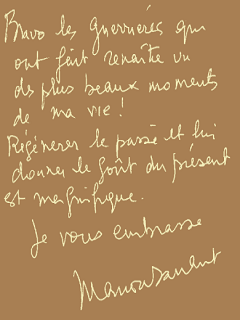 Bravo les guerrières qui
ont fait renaître un
des plus beaux moments
de ma vie !
Régénérer le passé et lui
donner le goût du présent
est magnifique.
Je vous embrasse